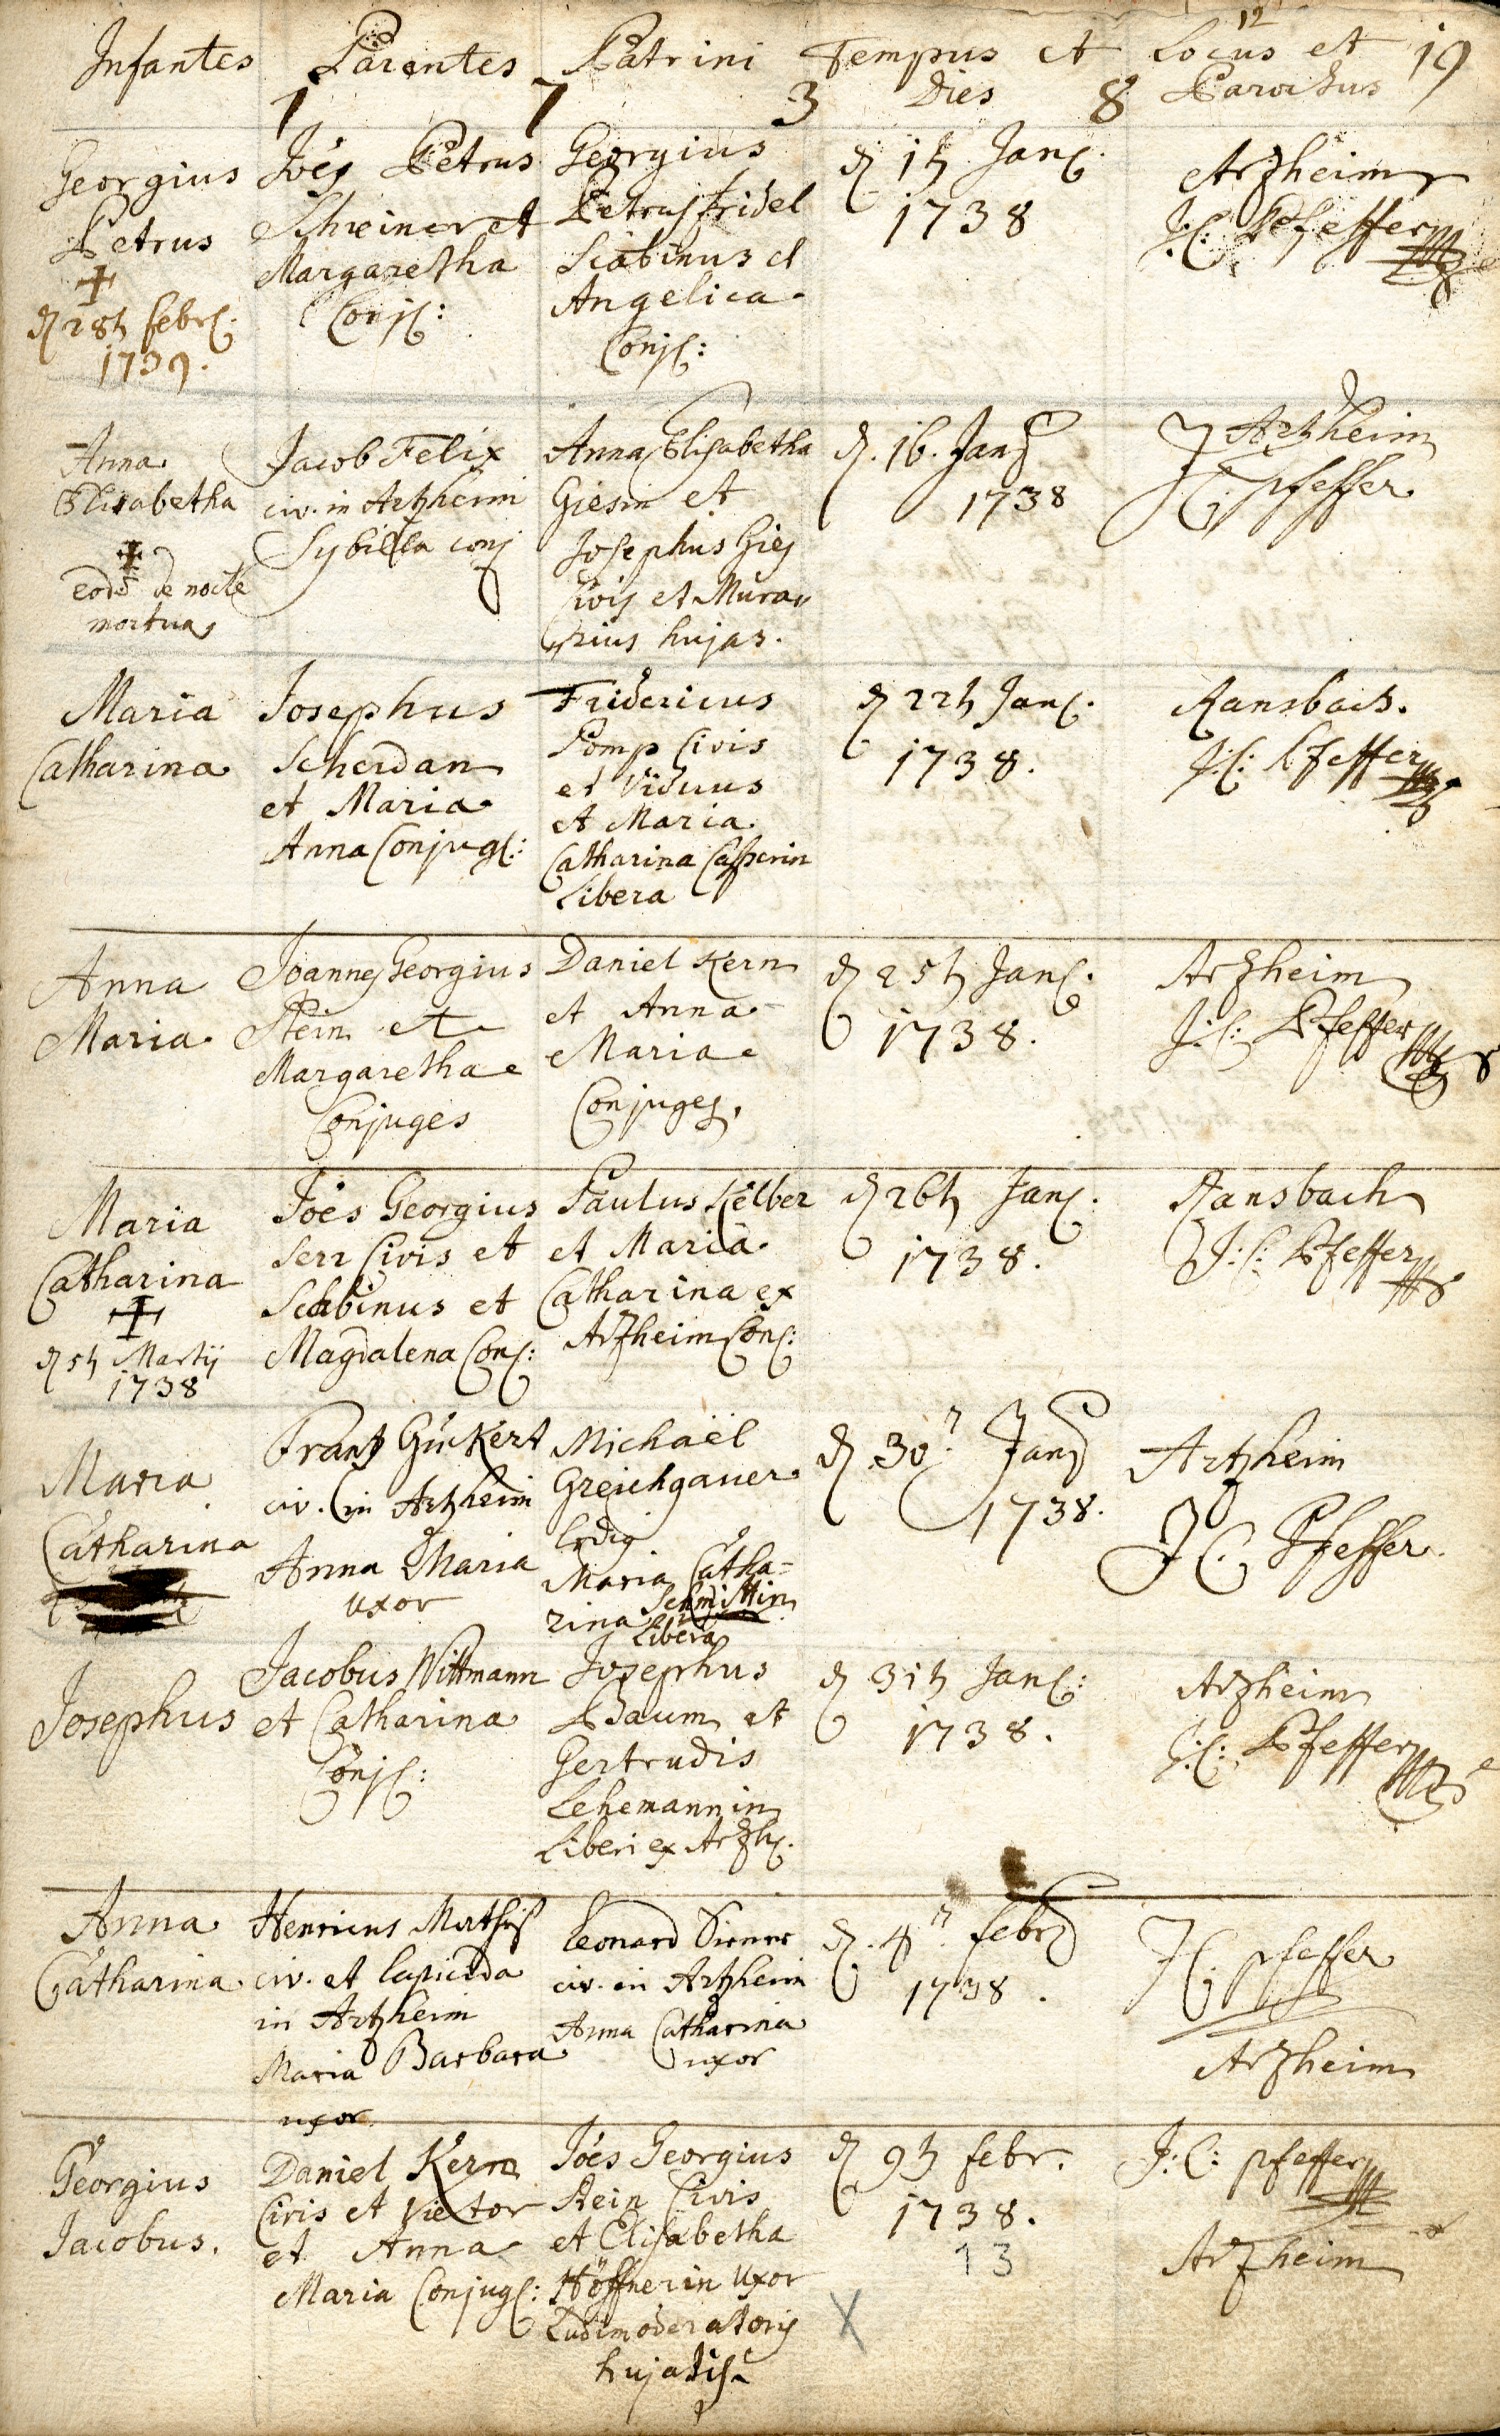 Infantes Parentes Patrini Tempus et Locus et 19
12
1 7 3 Dies 8 Parochus
Georgius
Petrus
28t febr:
1739.
Joës Petrus
Schreiner et
Margaretha
Conj:
Georgius
Petrus fridel
Scabinus et
Angelica
Conj:
d 1t Jan:
1738
Arzheim
J: C: Pfeffer
Anna
Elisabetha
eodē de nocte
mortua
Jacob Felix
civ. in Artzheim
Sybilla conj
Anna Elisabetha
Giesin et
Josephus Gies
Civis et Mura
rius hujas.
d. 16. Jan
1738
Artzheim
J C. pfeffer
Maria
Catharina
Josephus
Scherdan
et Maria
Anna Conjug:
Fridericus
Pomp Civis
et Viduus
et Maria
Catharina Casperin
Libera
d 22t Jan:
1738.
Ransbach.
J: C: Pfeffer
Anna
Maria
Joannes Georgius
Stein et
Margaretha
Conjuges
Daniel Kern
et Anna
Maria
Conjuges,
d 25t Jan:
1738.
Arzheim
J: C: Pfeffer
Maria
Catharina
d 5t Martij
1738
Joës Georgius
Serr Civis et
Scabinus et
Magdalena Con:
Paulus Kelber
et Maria
Catharina ex
Arzheim Con:
d 26t Jan:
1738.
Ransbach
J: C: Pfeffer
Maria
Catharina
Frantz Gückert
civ. in Artzheim
Anna Maria
uxor
Michaël
Greichgauer
ledig
Maria Catha=
rina Schmittin
Libera
d. 30. Jan
1738.
Artzheim
J C. Pfeffer.
Josephus
Jacobus Wittmann
et Catharina
Conj:
Josephus
Baum et
Gertrudis
Lehemannin
Liberi ex Arzh.
d 31t Jan:
1738.
Arzheim
J: C: Pfeffer
Anna
Catharina
Henricus Mathis
civ. et lapicida
in Artzheim
Maria Barbara
uxor
Leonard
civ. in Artzheim
Anna Catharina
uxor
d. 4. febr
1738.
J C. pfeffer
Arzheim
Georgius
Jacobus.
Daniel Kern
Civis et Vietor
et Anna
Maria Conjug:
Joës Georgius
Stein Civis
et Elisabetha
Höffnerin Uxor
Ludimoderatoris
hujatis
d 9t febr.
1738.
13
X
J: C: pfeffer
Arzheim